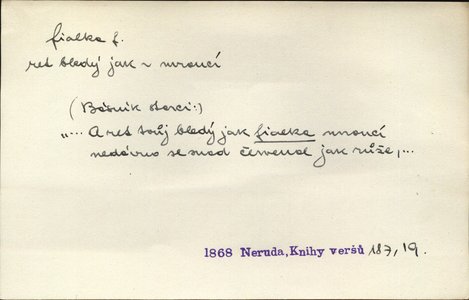 fialka f.
ret bledý jak ~ mroucí
(Básník starci:)
„... A ret tvůj bledý jak fialka mroucí
nedávno se snad červenal jak růže,...
1868 Neruda, Knihy veršů 187,19.